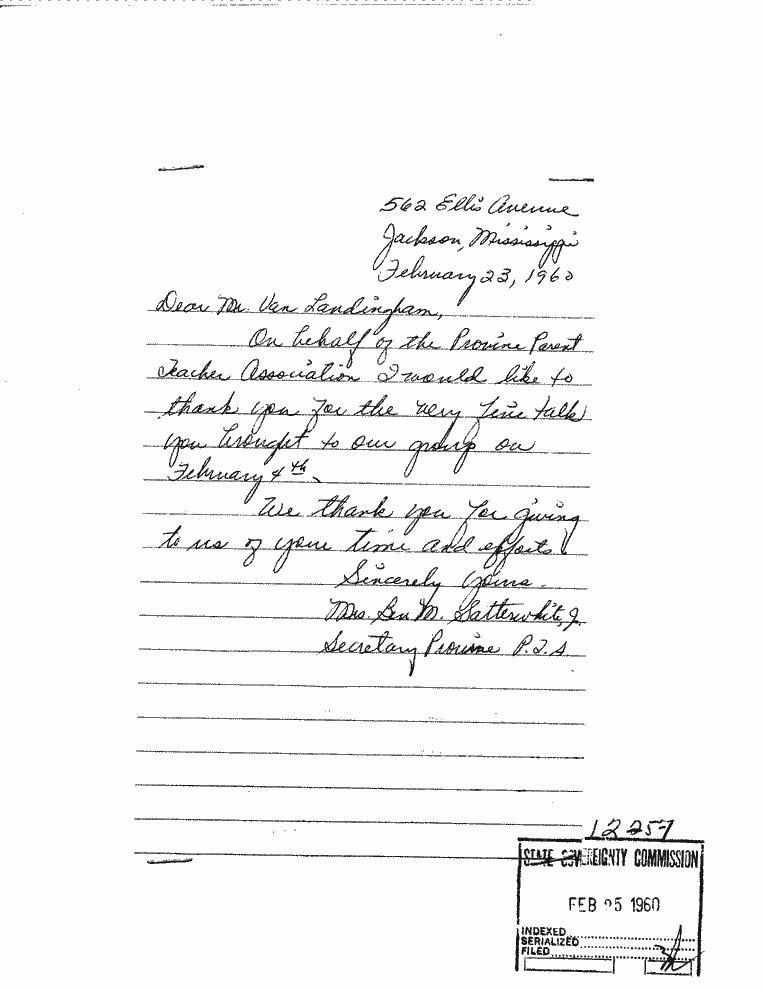 562 Ellis Avenue
Jackson, Mississippi
February 23, 1960
Dear Mr. Van Landingham,
On behalf of the Provine Parent
Teacher Association I would like to
thank you for the very fine talk
you brought to our group on
February 4th.
We thank you for giving
to us of your time and efforts.
Sincerely yours.
Mrs. Ben M. Satterwhite, Jr.
Secretary Provine P.T.A
12257
STATE SOVEREIGNTY COMMISSION
FEB 25 1960
INDEXED
SERIALIZED
FILED